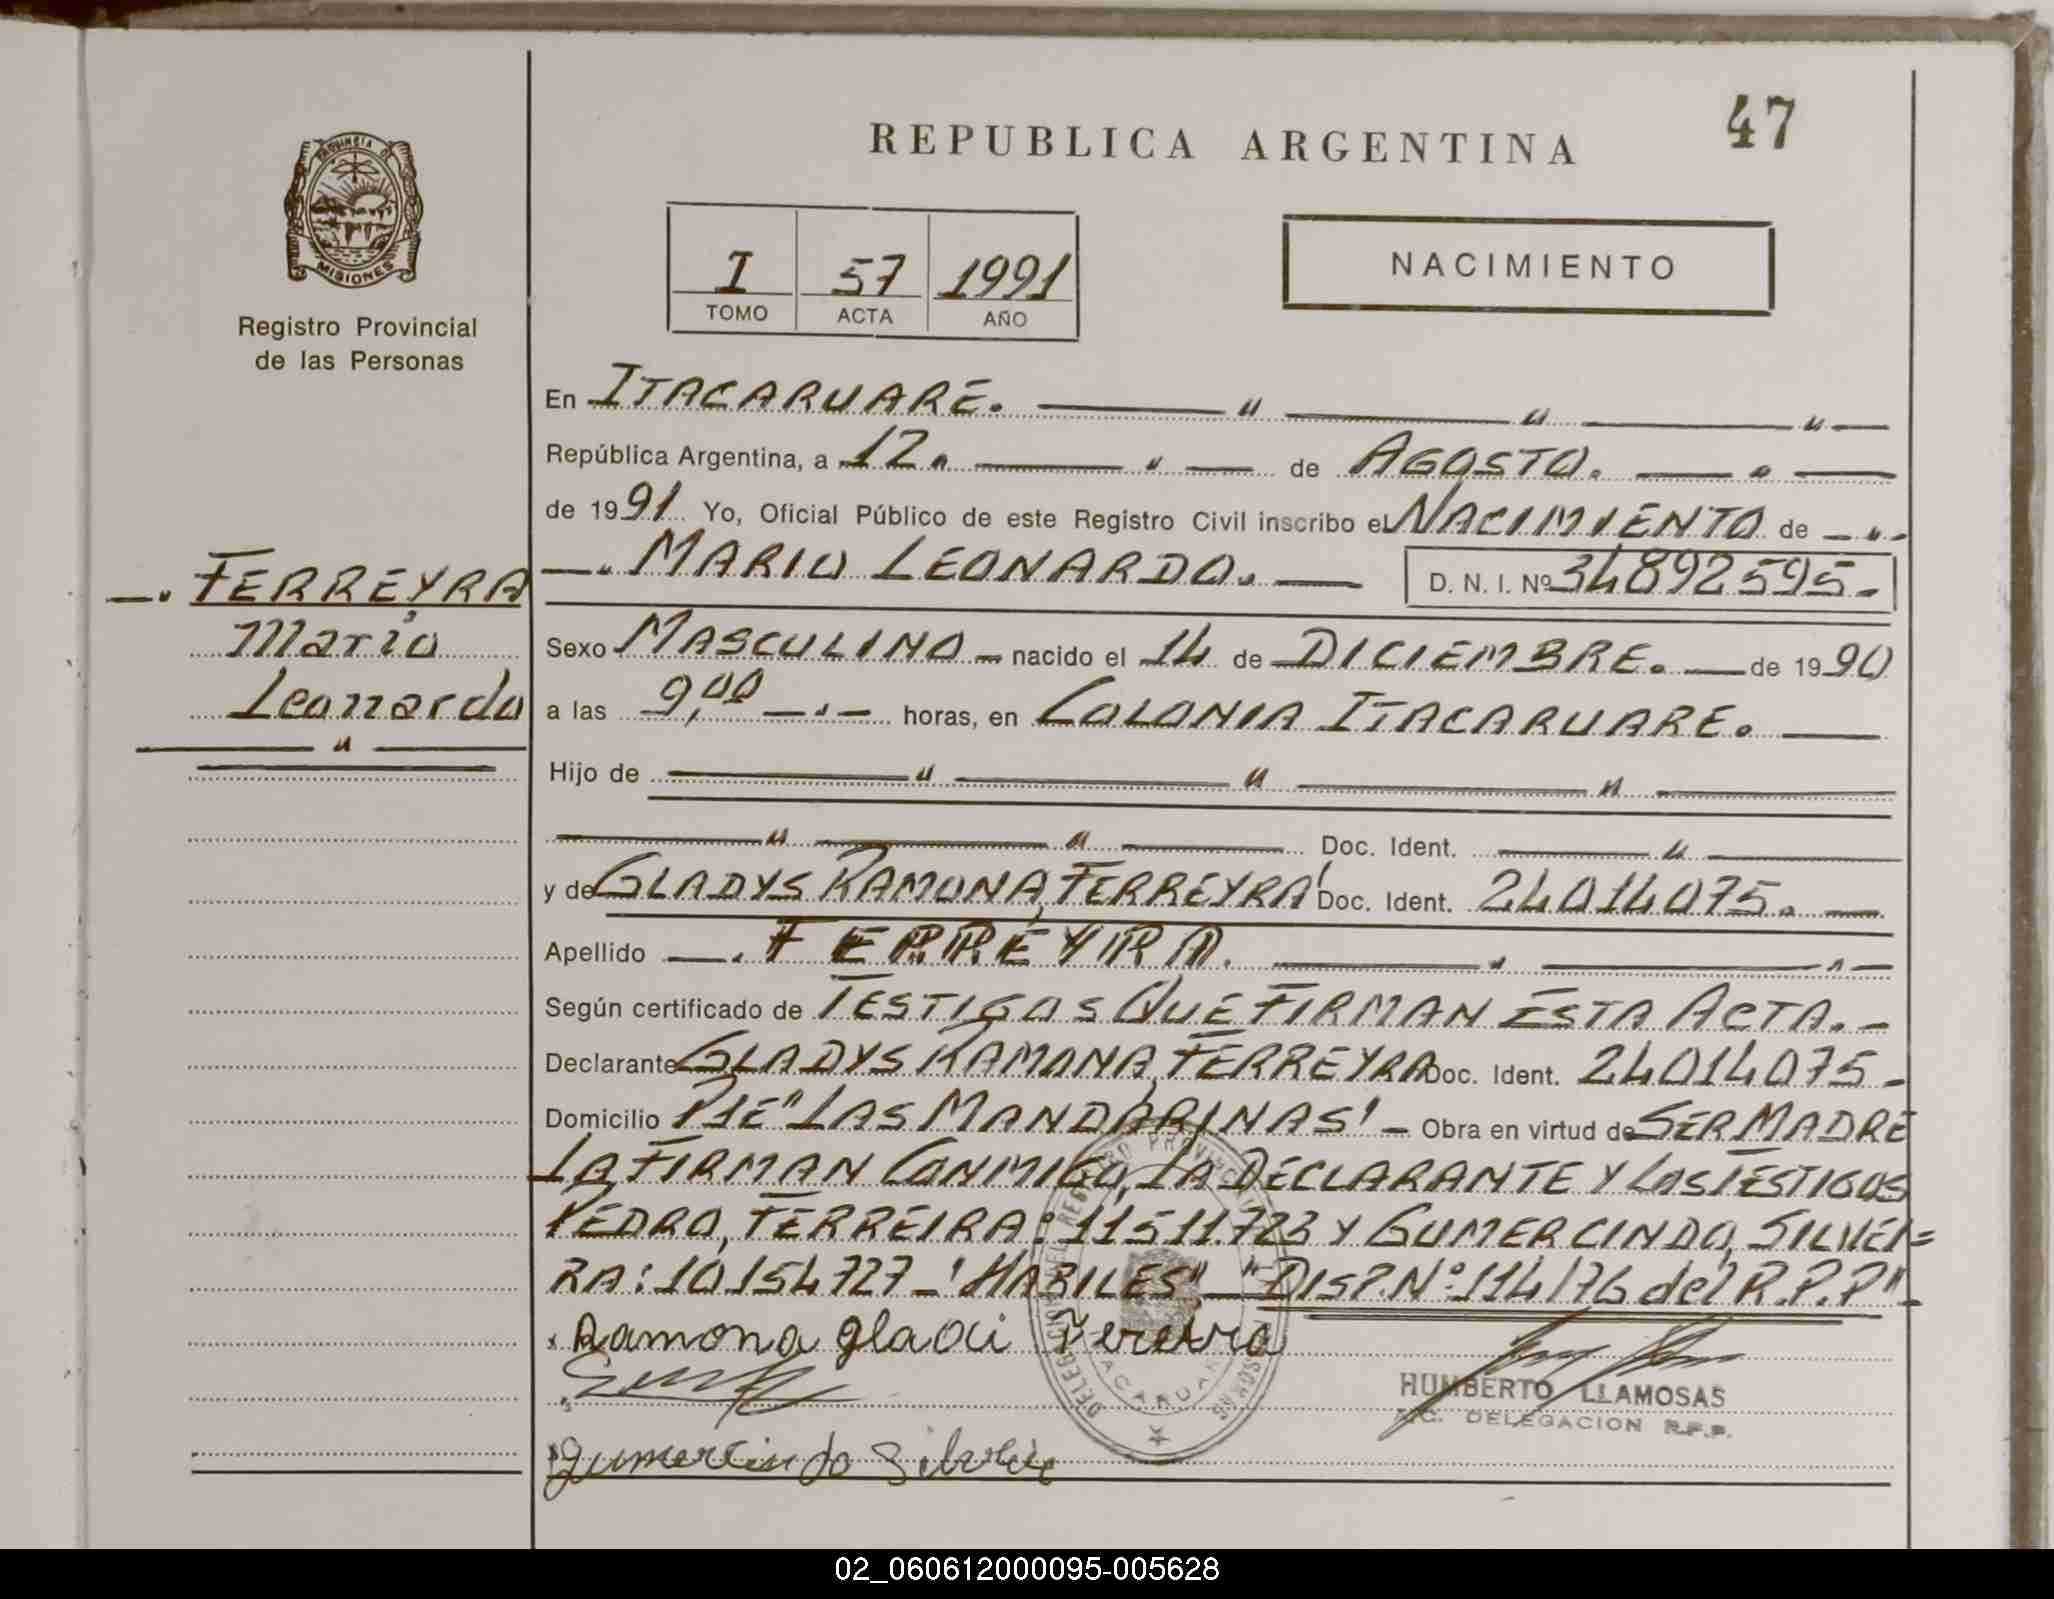 47
REPUBLICA ARGENTINA
PROVINCIA DE
MISIONES
Registro Provincial
de las Personas
I 57 1991
TOMO ACTA AÑO
NACIMIENTO
En ITACARUARE.
República Argentina, a 12. de AGOSTO.
de 1991 Yo, Oficial Público de este Registro Civil inscribo el NACIMIENTO de
MARIO LEONARDO. D. N. I. Nº 34892595-
FERREYRA
Mario
Leonardo
Sexo MASCULINO - nacido el 14 de DICIEMBRE. de 1990
a las 9,00 horas, en COLONIA ITACARUARE.
Hijo de
Doc. Ident.
y de GLADYS RAMONA, FERREYRA Doc. Ident. 24014075.
Apellido FERREYRA.
Según certificado de TESTIGOS QUE FIRMAN ESTA ACTA.-
Declarante GLADYS RAMONA, FERREYRA Doc. Ident. 24014075-
Domicilio PJE "LAS MANDARINAS" - Obra en virtud de SER MADRE
LA FIRMAN CONMIGO, LA DECLARANTE Y LOS TESTIGOS
PEDRO, FERREIRA: 11511.723 Y GUMERCINDO, SILVEI=
RA: 10154727 - "HABILES". - "DISP. Nº 114/76 del R.P.P"-
Ramona gladi Fereira
HUMBERTO LLAMOSAS
DELEGACION R.P.P.
Gumercindo
02_060612000095-005628